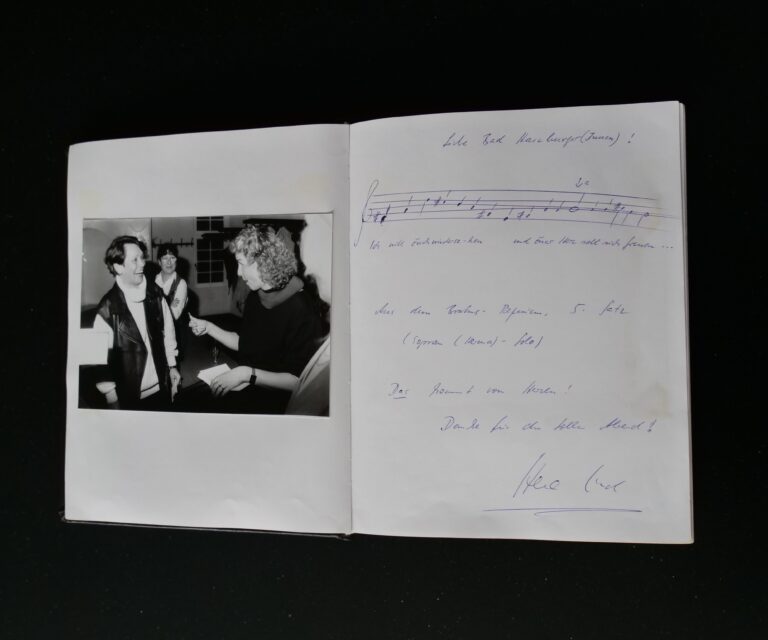 Liebe Bad Harzburger(Innen)!
Ich will Euch wiederse-hen und Euer Herz soll sich freuen ...
Aus dem Brahms-Requiem, 5. Satz
(Sopran - Solo)
Das kommt von Herzen!
Danke für den tollen Abend!
Hera Lind